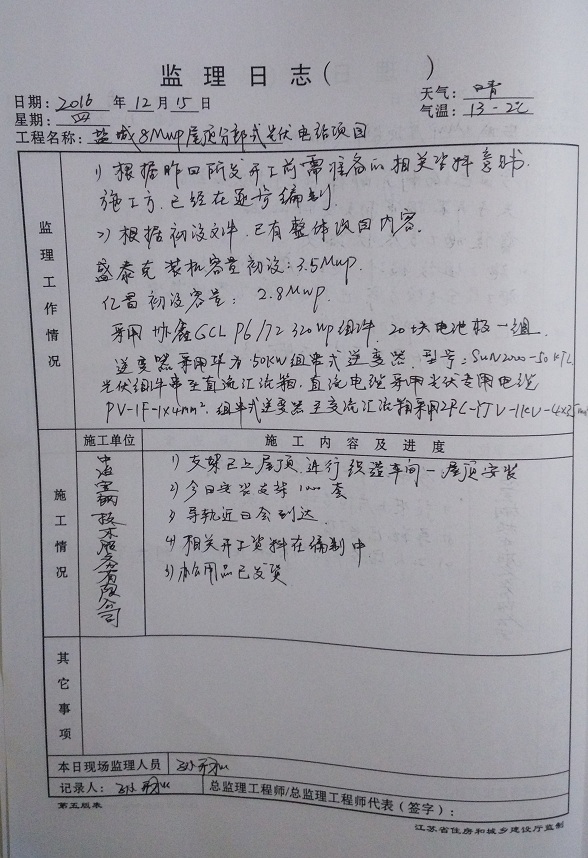 监理日志( )
日期: 2016 年 12 月 15 日
天气: 晴
星期: 四
气温: 13-2℃
工程名称: 盐城8Mwp屋顶分布式光伏电站项目
监理工作情况
1) 根据昨日所发开工前需准备的相关资料
施工方已经在逐步编制
2) 根据初设文件,已有整体项目内容。
盛泰克装机容量初设: 3.5Mwp.
亿昌初设容量: 2.8Mwp.
采用协鑫GCL P6/72 320wp组件. 20块电池板一组.
逆变器采用华为50KW组串式逆变器. 型号: SUN2000-50KTL
光伏组件串至直流汇流箱.直流电缆采用光伏专用电缆
PV-1F-1×4mm². 组串式逆变器至交流汇流箱采用ZRC-YJV-1KV-4×25mm²
施工情况
施工单位
施工内容及进度
中冶宝钢技术服务有限公司
1) 支架已上屋顶.进行织造车间一屋顶安装
2) 今日安装支架 套
3) 导轨近日会到达.
4) 相关开工资料在编制中
5) 办公用品已发货
其它事项
本日现场监理人员
记录人:
总监理工程师/总监理工程师代表(签字):
第五版表
江苏省住房和城乡建设厅监制